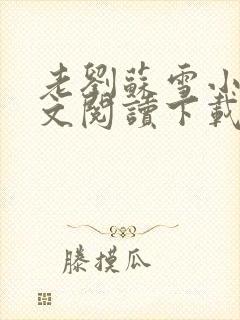 老劉蘇雪小
文閱讀下載
滕摸瓜